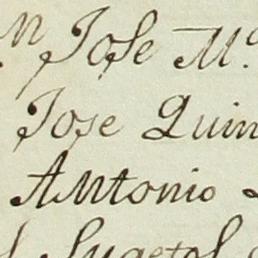 n Jose M.
Jose Quin
Antonio
Sugetos